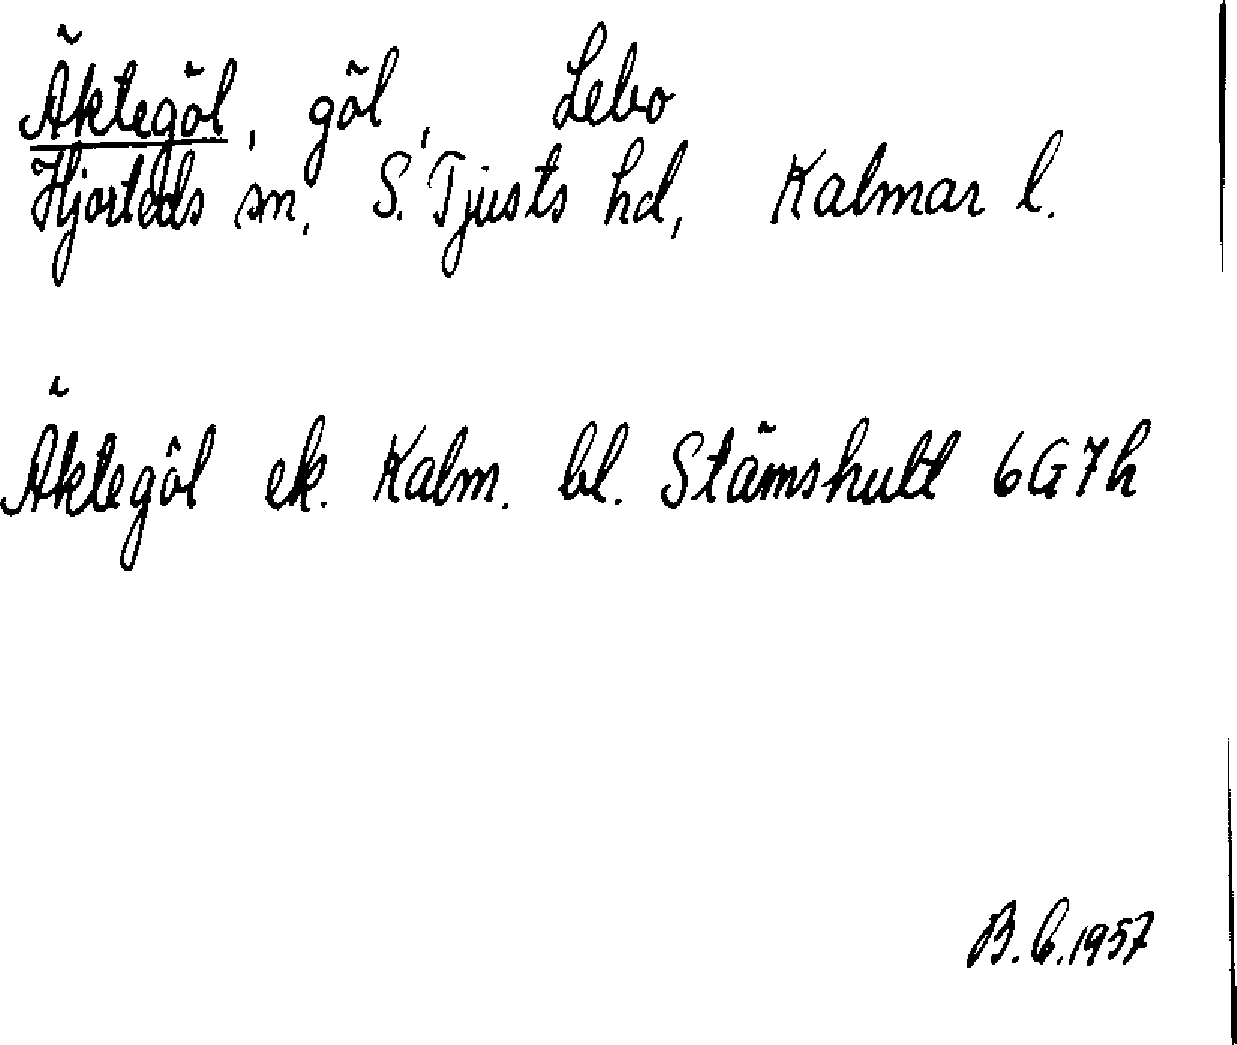 Äktegöl, göl, Lebo
Hjorteds sn, S. Tjusts hd, Kalmar l.
Äktegöl ek. Kalm. bl. Stämshult 6G7h
B.G.1957